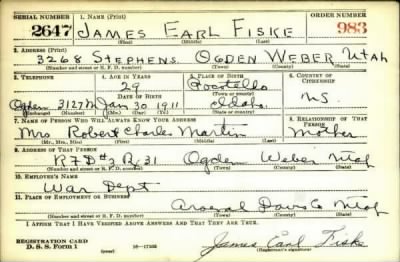 SERIAL NUMBER 1. NAME (Print) ORDER NUMBER
2647 JAMES EARL FISKE 983
(First) (Middle) (Last)
2. ADDRESS (Print)
3268 STEPHENS OGDEN WEBER UTAH
(Number and street or R. F. D. number) (Town) (County) (State)
3. TELEPHONE 4. AGE IN YEARS 5. PLACE OF BIRTH 6. COUNTRY OF CITIZENSHIP
29 Pocatello
DATE OF BIRTH (Town or county)
Ogden 3127M Jan 30 1911 Idaho U.S.
(Exchange) (Number) (Mo.) (Day) (Yr.) (State or country)
7. NAME OF PERSON WHO WILL ALWAYS KNOW YOUR ADDRESS 8. RELATIONSHIP OF THAT PERSON
Mrs Robert Charles Martin Mother
(Mr., Mrs., Miss) (First) (Middle) (Last)
9. ADDRESS OF THAT PERSON
RFD #3 Ogden Weber Utah
(Number and street or R. F. D. number) (Town) (County) (State)
10. EMPLOYER'S NAME
War Dept
11. PLACE OF EMPLOYMENT OR BUSINESS
Arsenal Davis Co Utah
(Number and street or R. F. D. number) (Town) (County) (State)
I AFFIRM THAT I HAVE VERIFIED ABOVE ANSWERS AND THAT THEY ARE TRUE.
REGISTRATION CARD
D. S. S. Form 1 (over) James Earl Fiske
(Registrant's signature)